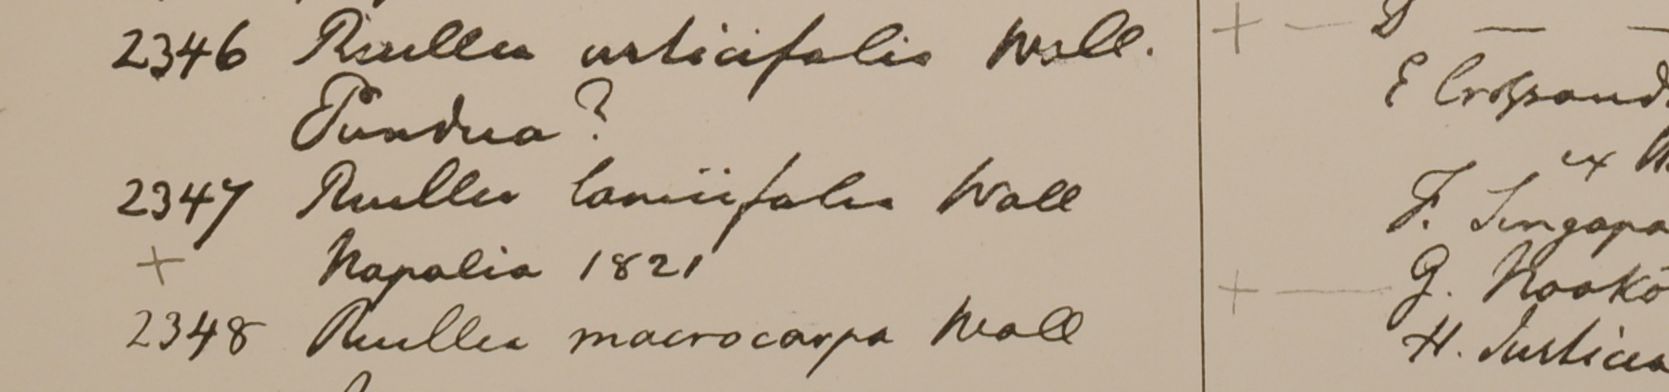 2346 Ruellia urticifolia Wall.
Pundua?
2347 Ruellia lamiifolia Wall
+ Napalia 1821
2348 Ruellia macrocarpa Wall
+ — D — —
E Crossand
ex
F. Singapo
+ — G. Nooko
H. Justicia